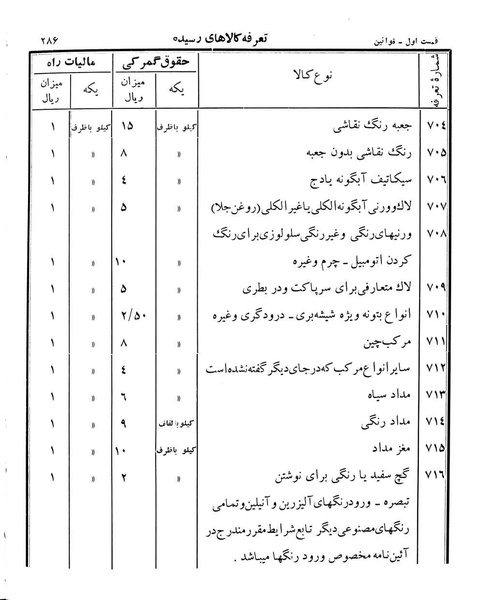 قسمت اول - قوانین تعرفه کالاهای رسیده ۲۸۶
شمارهٔ تعرفه نوع کالا حقوق گمرکی مالیات راه
یکه میزان ریال یکه میزان ریال
۷۰۴ جعبه رنگ نقاشی کیلو باظرف ۱۵ کیلو باظرف ۱
۷۰۵ رنگ نقاشی بدون جعبه » ۸ » ۱
۷۰۶ سیکاتیف آبگونه یادج » ۴ » ۱
۷۰۷ لاک وورنی آبگونه الکلی یا غیر الکلی (روغن جلا) » ۵ » ۱
۷۰۸ ورنیهای رنگی وغیر رنگی سلولوزی برای رنگ
کردن اتومبیل - چرم وغیره » ۱۰ » ۱
۷۰۹ لاک متعارفی برای سرپاکت ودر بطری » ۵ » ۱
۷۱۰ انواع بتونه ویژه شیشه‌بری - درودگری وغیره » ۲/۵۰ » ۱
۷۱۱ مرکب چین » ۸ » ۱
۷۱۲ سایر انواع مرکب که در جای دیگر گفته نشده است » ۴ » ۱
۷۱۳ مداد سیاه » ۶ » ۱
۷۱۴ مداد رنگی کیلو بالفاف ۹ » ۱
۷۱۵ مغز مداد کیلو باظرف ۱۰ » ۱
۷۱۶ گچ سفید یا رنگی برای نوشتن » ۲ » ۱
تبصره - ورود رنگهای آلیزرین و آنیلین و تمامی
رنگهای مصنوعی دیگر تابع شرایط مقرر مندرج در
آئین نامه مخصوص ورود رنگها میباشد .